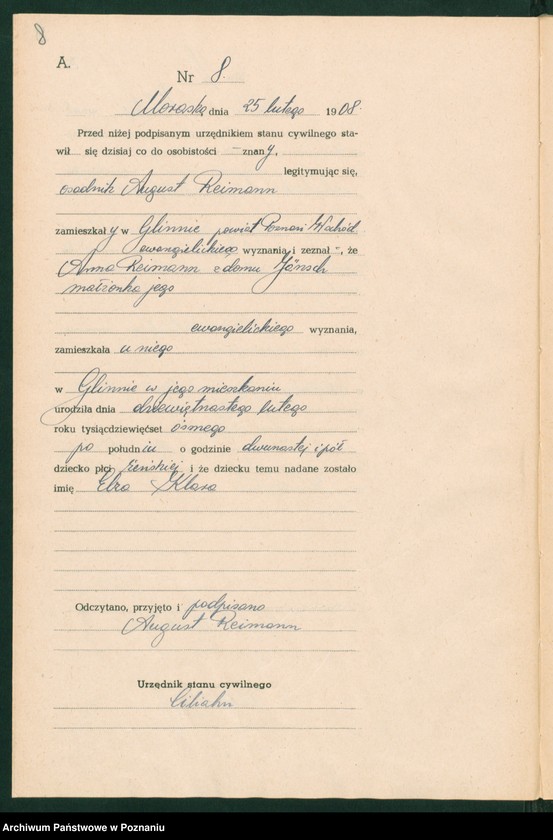 8
A.
Nr 8.
Morasko dnia 25 lutego 1908.
Przed niżej podpisanym urzędnikiem stanu cywilnego sta-
wił się dzisiaj co do osobistości – znany,
legitymując się,
osadnik August Reimann
zamieszkały w Glinnie powiat Poznań Wschód
ewangielickiego wyznania i zeznał –, że
Anna Reimann z domu Jänsch
małżonka jego
ewangielickiego wyznania,
zamieszkała u niego
w Glinnie w jego mieszkaniu
urodziła dnia dziewiętnastego lutego
roku tysiącdziewięćset ósmego
po południu o godzinie dwunastej i pół
dziecko płci żeńskiej i że dziecku temu nadane zostało
imię Elza Klara
Odczytano, przyjęto i podpisano
August Reimann
Urzędnik stanu cywilnego
Archiwum Państwowe w Poznaniu